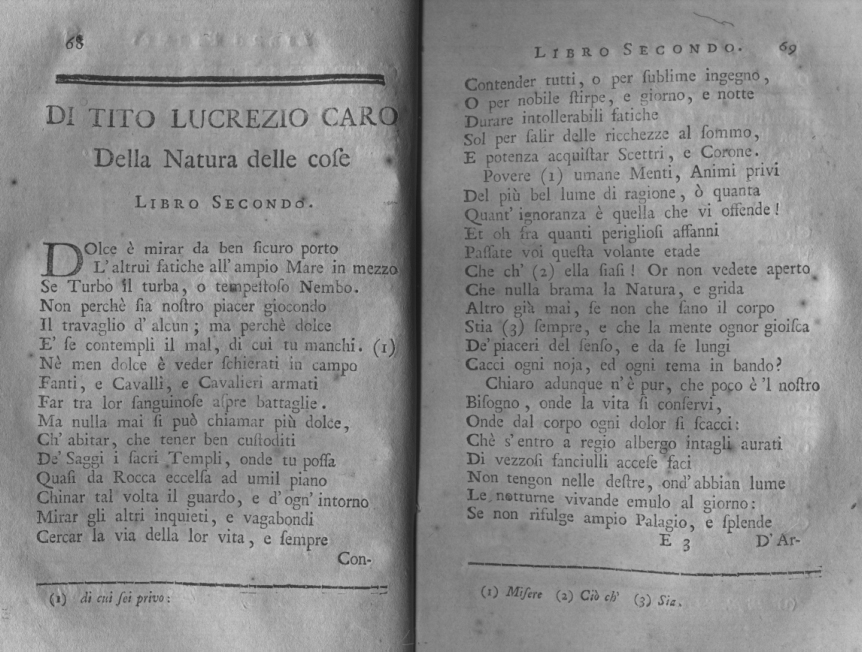 68
DI TITO LUCREZIO CARO
Della Natura delle coſe
LIBRO SECONDO.
DOlce è mirar da ben ſicuro porto
L'altrui fatiche all'ampio Mare in mezzo
Se Turbo il turba, o tempeſtoſo Nembo.
Non perchè ſia noſtro piacer giocondo
Il travaglio d'alcun; ma perchè dolce
E' ſe contempli il mal, di cui tu manchi. (1)
Nè men dolce è veder ſchierati in campo
Fanti, e Cavalli, e Cavalieri armati
Far tra lor ſanguinoſe aſpre battaglie.
Ma nulla mai ſi può chiamar più dolce,
Ch'abitar, che tener ben cuſtoditi
De' Saggi i ſacri Templi, onde tu poſſa
Quaſi da Rocca eccelſa ad umil piano
Chinar tal volta il guardo, e d'ogn' intorno
Mirar gli altri inquieti, e vagabondi
Cercar la via della lor vita, e ſempre
Con-
(1) di cui ſei privo:
LIBRO SECONDO. 69
Contender tutti, o per ſublime ingegno,
O per nobile ſtirpe, e giorno, e notte
Durare intollerabili fatiche
Sol per ſalir delle ricchezze al ſommo,
E potenza acquiſtar Scettri, e Corone.
Povere (1) umane Menti, Animi privi
Del più bel lume di ragione, ò quanta
Quant' ignoranza è quella che vi offende!
Et oh fra quanti periglioſi affanni
Paſſate voi queſta volante etade
Che ch' (2) ella ſiaſi! Or non vedete aperto
Che nulla brama la Natura, e grida
Altro già mai, ſe non che ſano il corpo
Stia (3) ſempre, e che la mente ognor gioiſca
De' piaceri del ſenſo, e da ſe lungi
Cacci ogni noja, ed ogni tema in bando?
Chiaro adunque n'è pur, che poco è 'l noſtro
Biſogno, onde la vita ſi conſervi,
Onde dal corpo ogni dolor ſi ſcacci:
Chè s'entro a regio albergo intagli aurati
Di vezzoſi fanciulli acceſe faci
Non tengon nelle deſtre, ond'abbian lume
Le notturne vivande emulo al giorno:
Se non rifulge ampio Palagio, e ſplende
E 3 D'Ar-
(1) Miſere (2) Ciò ch' (3) Sia.